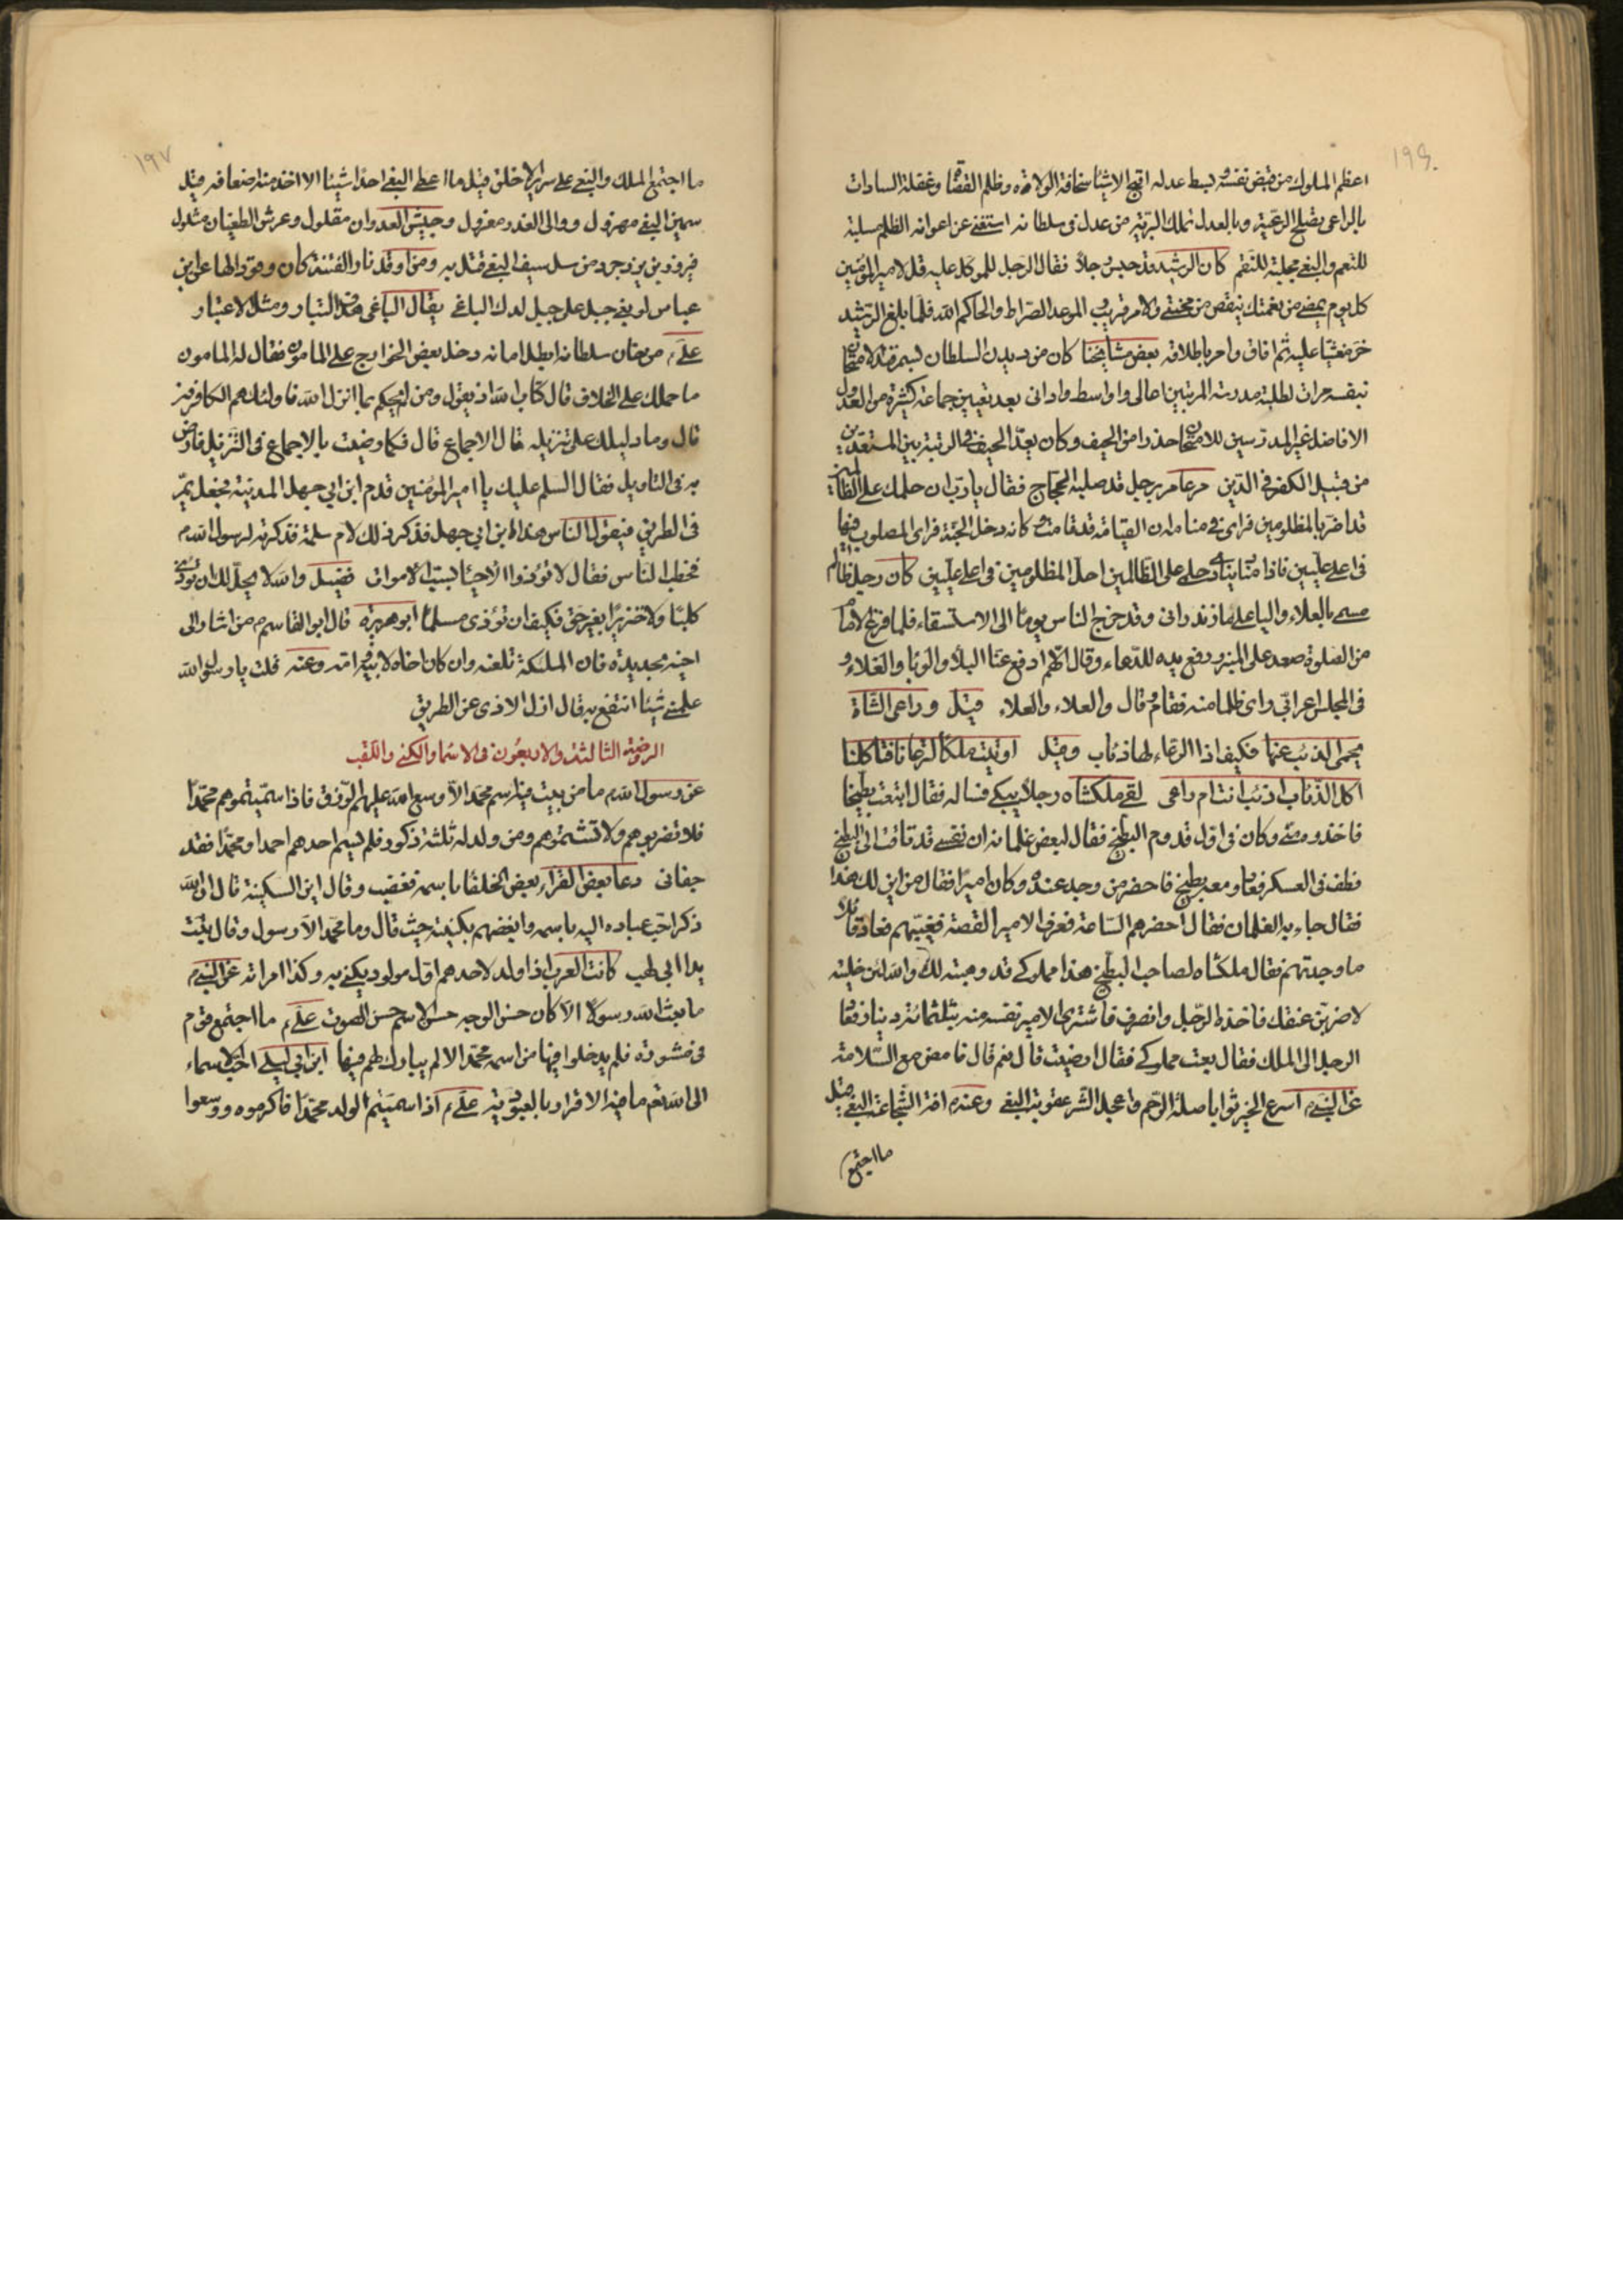 ١٩٦
اعظم الملوك من قبض نفسه وبسط عدله اقبح الاشياء سخافة الولاة وظلم القضاة وغفلة السادات
بالراعى يصلح الرعية وبالعدل تملك البرية من عدل فى سلطانه استغنى عن اعوانه الظلم مسلبة
للنعم والبغى مجلبة للنقم كان الرشيد قد حبس رجلا فقال الرجل للموكل عليه قل لامير المؤمنين
كل يوم يمضى من نعمتك ينقص من محنتى والامر قريب الموعد الصراط والحاكم الله فلما بلغ الرشيد
خر مغشيا عليه ثم افاق وامر باطلاقه بعض مشايخنا كان من ديدن السلطان بسمرقند الامتحان
بنفسه مرات لطلبة مدرسته المرتبين اعالى واواسط وادانى بعد تعيين جماعة كثيرة من العدول
الافاضل غير المدرسين للامتحان حذرا من الحيف وكان يعد الحيف فى الرتبة بين المستعدين
من قبيل الكفر فى الدين مر عامر برجل قد صلبه الحجاج فقال يا رب ان حلمك على الظالمين
قد اضر بالمظلومين فراى فى منامه ان القيامة قد قامت وكانه دخل الجنة فراى المصلوب فيها
فى اعلى عليين فاذا مناد ينادى حلمى على الظالمين احل المظلومين فى اعلى عليين كان رجل ظالم
مسمى بالعلاء واليا على ماذندرانى وقد خرج الناس يوما الى الاستسقاء فلما فرغ الامام
من الصلوة صعد على المنبر ورفع يديه للدعاء وقال اللهم ادفع عنا البلاء والوبا والغلاء و
فى المجلس اعرابى راى ظلما منه فقام وقال والعلاء والعلاء قيل وراعى الشاة
يحمى الذئب عنها فكيف اذا الرعاء لها ذئاب وقيل اوتيت ملكا لترعانا فتاكلنا
اكل الذئاب اذئب انت ام راعى لقى ملكشاه رجلا يبكى فساله فقال ابتعت بطيخا
فاخذوه منى وكان فى اول قدوم البطيخ فقال لبعض غلمانه ان نفسى قد تاقت الى البطيخ
فطف فى العسكر فعاد ومعه بطيخ فاحضر من وجد عنده وكان اميرا فقال من اين لك هذا
فقال جاء به الغلمان فقال احضرهم الساعة فعرف الامير القصة فغيبهم فعاد وقال
ما وجدتهم فقال ملكشاه لصاحب البطيخ هذا مملوكى قد وهبته لك والله لئن خليته
لاضربن عنقك فاخذه الرجل وانصرف فاشترى الامير نفسه منه بثلثمائة دينار فعاد
الرجل الى الملك فقال بعت مملوكى فقال ارضيت قال نعم قال فامض مع السلامة
عن النبى م اسرع الخير ثوابا صلة الرحم واعجل الشر عقوبة البغى وعنه م افة الشجاعة البغى قيل
ما اجتمع
١٩٧
ما اجتمع الملك والبغى على سرير الا خلى قيل ما اعطى البغى احدا شيئا الا اخذ منه اضعافه قيل
سمين البغى مهزول ووالى الغدر معزول وجيش العدوان مفلول وعرش الطغيان مثلول
فيروز بن يزدجرد من سل سيف البغى قتل به ومن اوقد نار الفتنة كان وقودا لها على ابن
عباس لو بغى جبل على جبل لدك الباغى يقال الباغى التبار ومثل الاعتبار
على م من خان سلطانه ابطل امانه دخل بعض الخوارج على المامون فقال له المامون
ما حملك على الخلاف قال كتاب الله اذ يقول ومن لم يحكم بما انزل الله فاولئك هم الكافرون
قال وما دليلك على تنزيله قال الاجماع قال فكما رضيت بالاجماع فى التنزيل فارض
به فى التاويل فقال السلم عليك يا امير المؤمنين قدم ابن ابى جهل المدينة فجعل يمر
فى الطريق فيقول الناس هذا ابن ابى جهل فذكر ذلك لام سلمة فذكرته لرسول الله م
فخطب الناس فقال لا تؤذوا الاحياء بسبب الاموات فضيل والله لا يحل لك ان تؤذى
كلبا ولا خنزيرا بغير حق فكيف ان تؤذى مسلما ابو هريرة قال ابو القاسم م من اشار الى
اخيه بحديدة فان الملئكة تلعنه وان كان اخاه لابيه وامه وعنه قلت يا رسول الله
علمنى شيئا انتفع به قال ازل الاذى عن الطريق
الروضة الثالثة والاربعون فى الاسماء والكنى واللقب
عن رسول الله م ما من بيت فيه اسم محمد الا وسع الله عليهم الرزق فاذا سميتموهم محمدا
فلا تضربوهم ولا تشتموهم ومن ولد له ثلثة ذكور فلم يسم احدهم احمد او محمدا فقد
جفانى دعا بعض القراء بعض الخلفاء باسمه فغضب وقال اين السكينة قال ان الله
ذكر احب عباده اليه باسمه وابغضهم بكنيته حيث قال وما محمد الا رسول وقال تبت
يدا ابى لهب كانت العرب اذا ولد لاحدهم اول مولود يكنى به وكذا امراته عن النبى م
ما بعث الله رسولا الا كان حسن الوجه حسن الاسم حسن الصوت على م ما اجتمع قوم
فى مشورة فلم يدخلوا فيها من اسمه محمد الا لم يبارك لهم فيها ابن ابى ليلى احب الاسماء
الى الله تعم ما فيه الاقرار بالعبودية على م اذا سميتم الولد محمدا فاكرموه ووسعوا